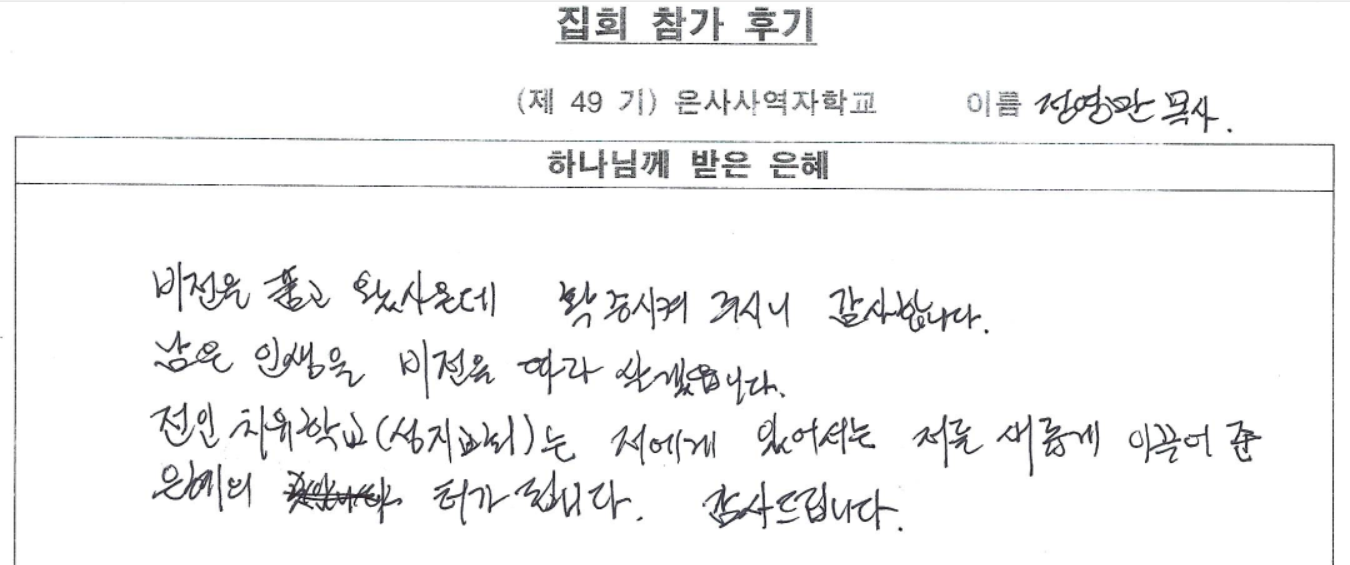 집회 참가 후기
(제 49 기) 은사사역자학교 이름 정영만 목사.
하나님께 받은 은혜
비전을 품고 왔사온데 확증시켜 주시니 감사합니다.
남은 인생을 비전을 따라 살겠습니다.
전인 치유학교(성지파워)는 저에게 있어서는 저를 새롭게 이끌어 준
은혜의 터가 됩니다. 감사드립니다.